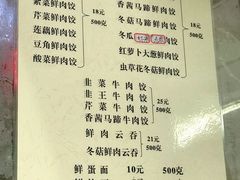 紫菜鲜肉饺
芹菜鲜肉饺 18元
莲藕鲜肉饺 500克
豆角鲜肉饺
酸菜鲜肉饺
香茜马蹄鲜肉饺
冬菇马蹄鲜肉饺 18元
冬瓜 肉饺 500克
红萝卜大葱鲜肉饺
虫草花冬菇鲜肉饺
韭菜牛肉饺
韭王牛肉饺 25元
芹菜牛肉饺 500克
香茜马蹄牛肉饺
鲜肉云吞 21元
冬菇鲜肉云吞 500克
鲜蛋面 10元 500克